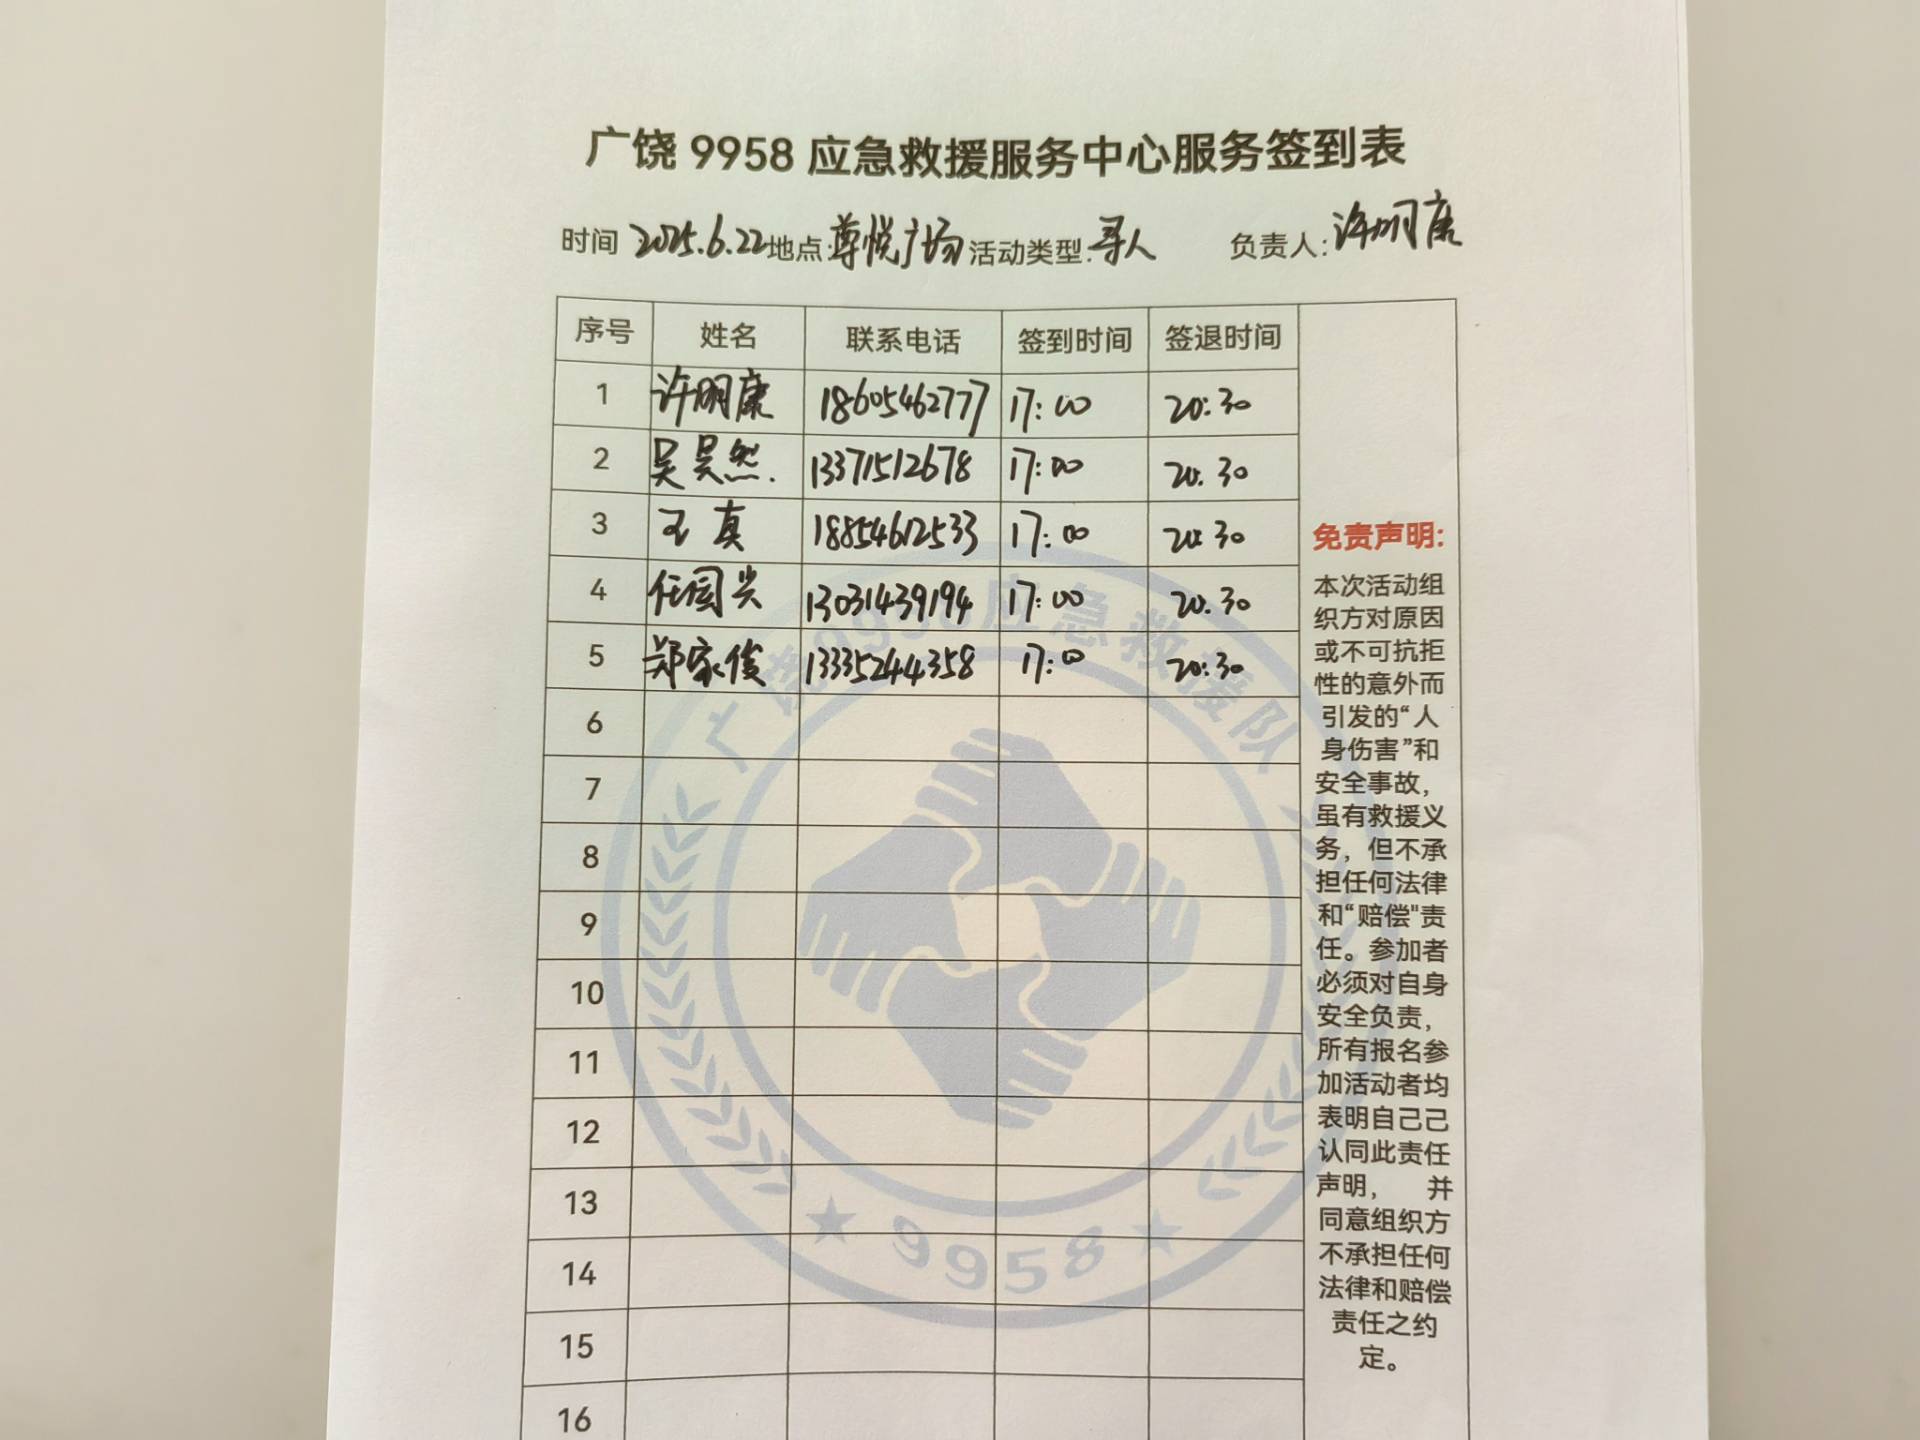 广饶 9958 应急救援服务中心服务签到表
时间 2025.6.22 地点: 尊悦广场 活动类型: 寻人 负责人: 许明康
序号 姓名 联系电话 签到时间 签退时间
1 许明康 18605462777 17:00 20:30
2 吴昊然. 13371512678 17:00 20:30
3 王真 18854612533 17:00 20:30
4 任国兴 13031439194 17:00 20:30
5 郑家俊 13335244358 17:00 20:30
6
7
8
9
10
11
12
13
14
15
16
免责声明:
本次活动组
织方对原因
或不可抗拒
性的意外而
引发的“人
身伤害”和
安全事故，
虽有救援义
务，但不承
担任何法律
和“赔偿"责
任。参加者
必须对自身
安全负责，
所有报名参
加活动者均
表明自己己
认同此责任
声明， 并
同意组织方
不承担任何
法律和赔偿
责任之约
定。
广饶9958应急救援队
★ 9958 ★